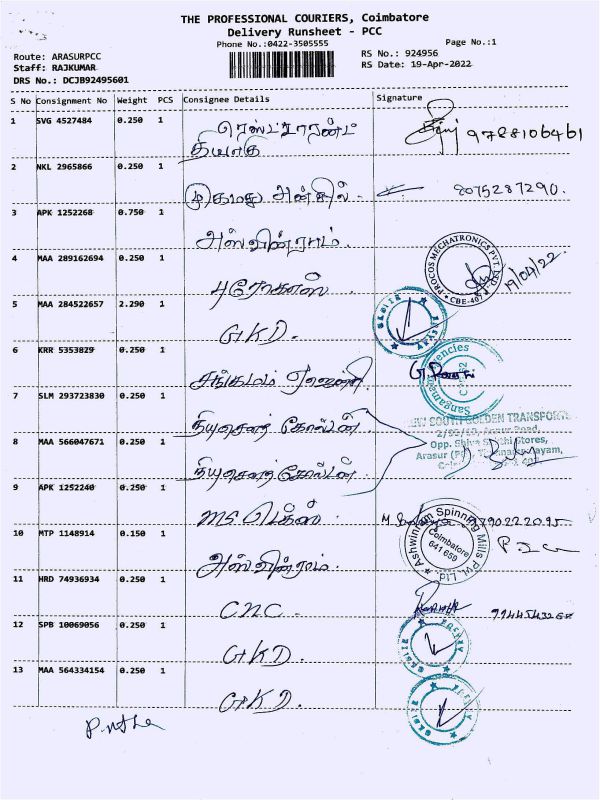 THE PROFESSIONAL COURIERS, Coimbatore
Delivery Runsheet - PCC
Phone No.:0422-3505555
Page No.:1
Route: ARASURPCC
RS No.: 924956
Staff: RAJKUMAR
RS Date: 19-Apr-2022
DRS No.: DCJB92495601
S No Consignment No Weight PCS Consignee Details Signature
1 SVG 4527484 0.250 1
ரெஸ்ட்டாரண்ட்
தியாகு
9788106461
2 NKL 2965866 0.250 1
முகமது அன்சில்
8075287290.
3 APK 1252268 0.750 1
அஸ்வின்ராம்.
4 MAA 289162694 0.250 1
PROCOS MECHATRONICS PVT. LTD.
CBE-407
19/04/22
புரோகாஸ்
5 MAA 284522657 2.290 1
GKD.
6 KRR 5353829 0.250 1
சங்கமம் ஏஜென்சி
7 SLM 293723830 0.250 1
நியுசவுத் கோல்டன்
SOUTH GOLDEN TRANSPORT
Opp. Shiva Stores,
8 MAA 566047671 0.250 1
நியுசவுத் கோல்டன்
9 APK 1252240 0.250 1
MS டெக்ஸ்
10 MTP 1148914 0.150 1
Ashwinram Spinning Mills Pvt. Ltd.
Coimbatore
641 659
அஸ்வின்ராம்.
11 HRD 74936934 0.250 1
CNC
12 SPB 10069056 0.250 1
GKD.
13 MAA 564334154 0.250 1
GKD.